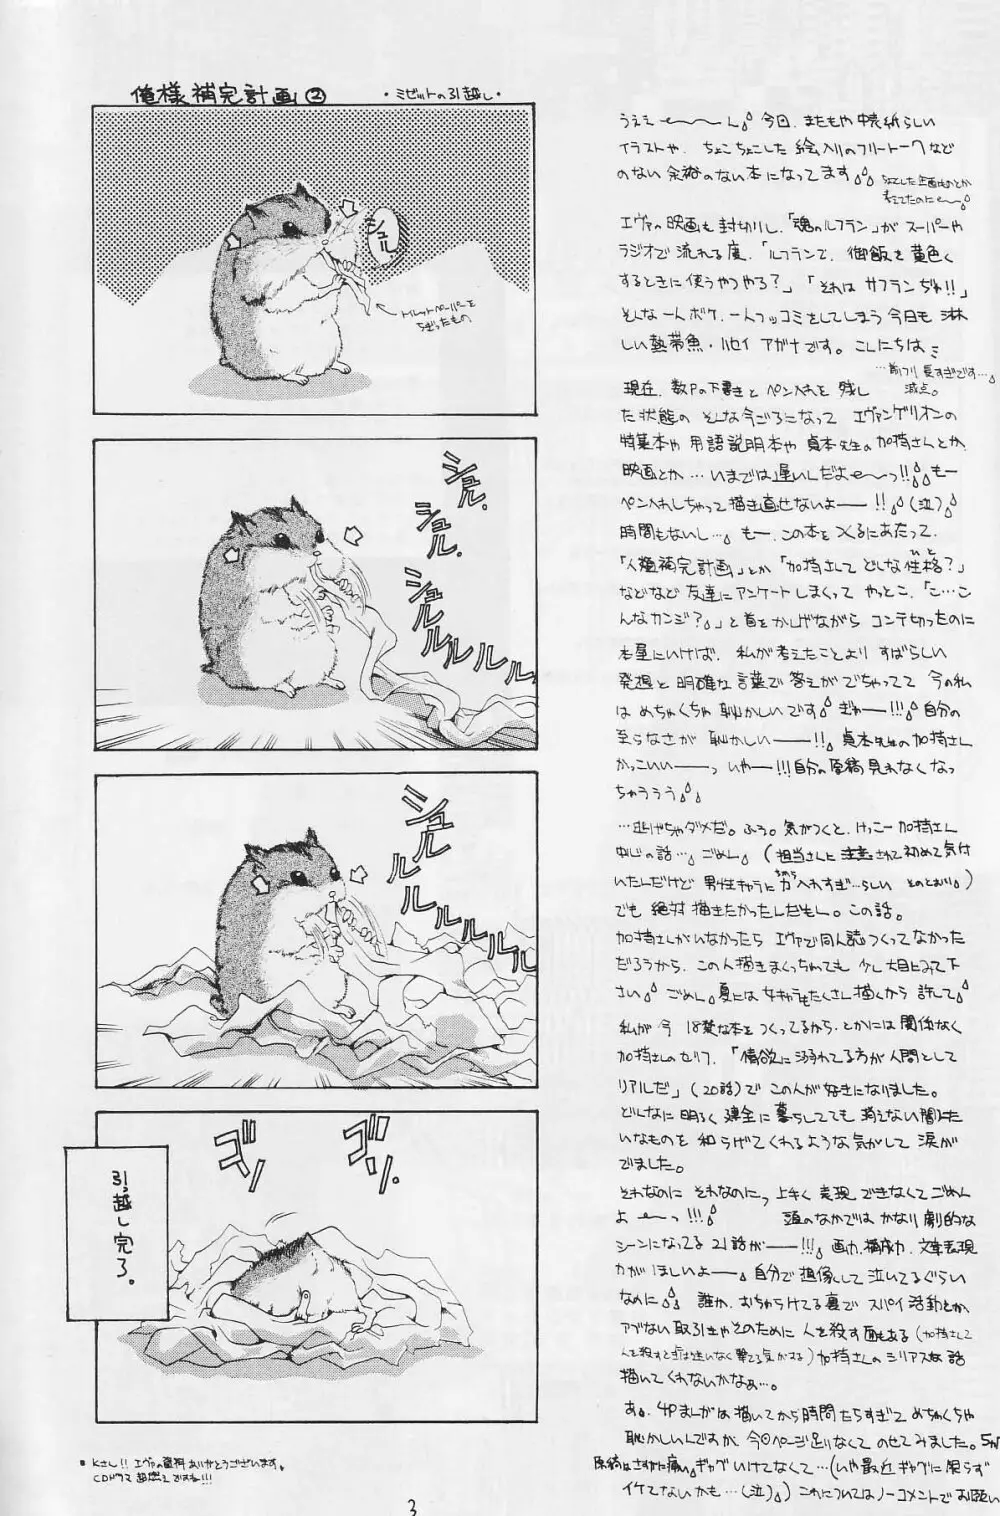 俺様補完計画②
・ミゼットの引越し・
シュル。
トイレットペーパーを
ちぎったもの
シュル。
シュル。
シュルルルルルル
シュル
ルルルルルルルル
ゴソ
ゴソ。
引っ越し完了。
・Kさん!! エヴァの資料ありがとうございます。
うえぇーーん 今回、またもや中表紙らしい
イラストや、ちょこちょこした絵入りのフリートークなど
のない余裕のない本になってます
エヴァの映画も封切りし、「魂のルフラン」がスーパーや
ラジオで流れる度、「ルフランて、御飯を黄色く
するときに使うやつやろ?」「それはサフランぢゃ!!」
そんな一人ボケ、一人ツッコミをしてしまう今日も淋
しい熱帯魚・ハセイアガナです。こんにちは
…前フリ長すぎです…
減点。
現在、数Pの下書きとペン入れを残し
た状態のそんな今ごろになってエヴァンゲリオンの
特集本や用語説明本や貞本先生の加持さんとか
映画とか…いまでは遅いんだよぉーっ!! もー
ペン入れしちゃって描き直せないよーー!!(泣)
時間もないし…。もー、この本をつくるにあたって、
「人類補完計画」とか「加持さんてどんな性格?」
などなど友達にアンケートしまくってやっとこ、「こ…こ
んなカンジ?」と首をかしげながらコンテ切ったのに
本屋にいけば、私が考えたことよりすばらしい
発想と明確な言葉で答えがでちゃってて今の私
はめちゃくちゃ恥ずかしいです ぎゃー!!! 自分の
至らなさが恥かしいーー!! 貞本先生の加持さん
かっこいいーーっ いやー!!! 自分の原稿見れなくなっ
ちゃううう
…逃げちゃダメだ。ふぅ。気がつくと、けっこー加持さん
中心の話…。ごめん。(担当さんに注意されて初めて気付
いたんだけど男性キャラに力入れすぎ…らしい そのとおり)
でも絶対描きたかったんだもん。この話。
加持さんがいなかったらエヴァで同人誌つくってなかった
だろうから、この人描きまくっちゃても少し大目にみて下
さい ごめん。夏には女キャラもたくさん描くから許して
私が今18禁な本をつくってるから、とかには関係なく
加持さんのセリフ、「情欲に溺れてる方が人間として
リアルだ」(20話)でこの人が好きになりました。
どんなに明るく健全に暮らしてても消えない闇みた
いなものを和らげてくれるような気がして涙が
でました。
それなのにそれなのにっ 上手く表現できなくてごめん
よぉーっ!!! 頭のなかではかなり劇的な
シーンになってる21話がーー!!! 画力、構成力、文章表現
力がほしいよーー 自分で想像して泣いてるぐらい
なのに 誰か、おちゃらけてる裏でスパイ活動とか、
アブない取引きやそのために人を殺す面もある(加持さんて
加持さんのシリアスな話
描いてくれないかなぁ…。
あ、4Pまんがは描いてから時間たちすぎてめちゃくちゃ
恥かしいんですが、今回ページ足りなくてのせてみました。
原稿はさすがに痛い。ギャグいけてなくて…(いや最近ギャグに限らず
イケてないかも…(泣)) これについてはノーコメントでお願い
3